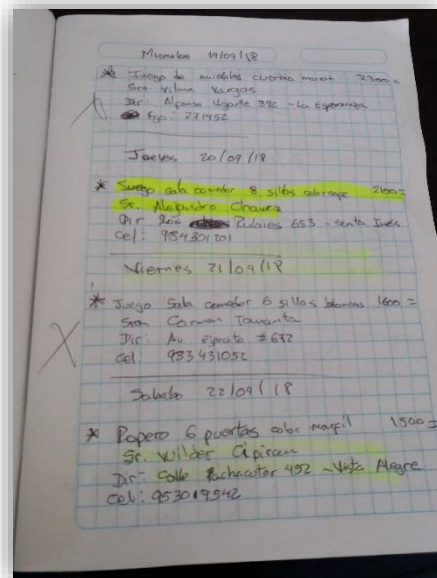 Miercoles 19/09/18
* Juego de muebles cuerina 2300 =
Sra Vilma Vargas
Dir: Alfonso Ugarte 392 - La esperanza
Fijo: 271452
Jueves 20/09/18
* Juego sala comedor 8 sillas color 2100 =
Sr. Alejandro Chavez
Dir 653 - Santa Inés
Cel: 984301701
Viernes 21/09/18
* Juego Sala comedor 6 sillas blancas 1600 =
Sra Carmen
Dir: Av. #672
Cel: 983431052
Sabado 22/09/18
* Ropero 6 puertas color marfil 1500 =
Sr. Wilder
Dir: Calle Pachacutec 452 - Vista Alegre
Cel: 953019542